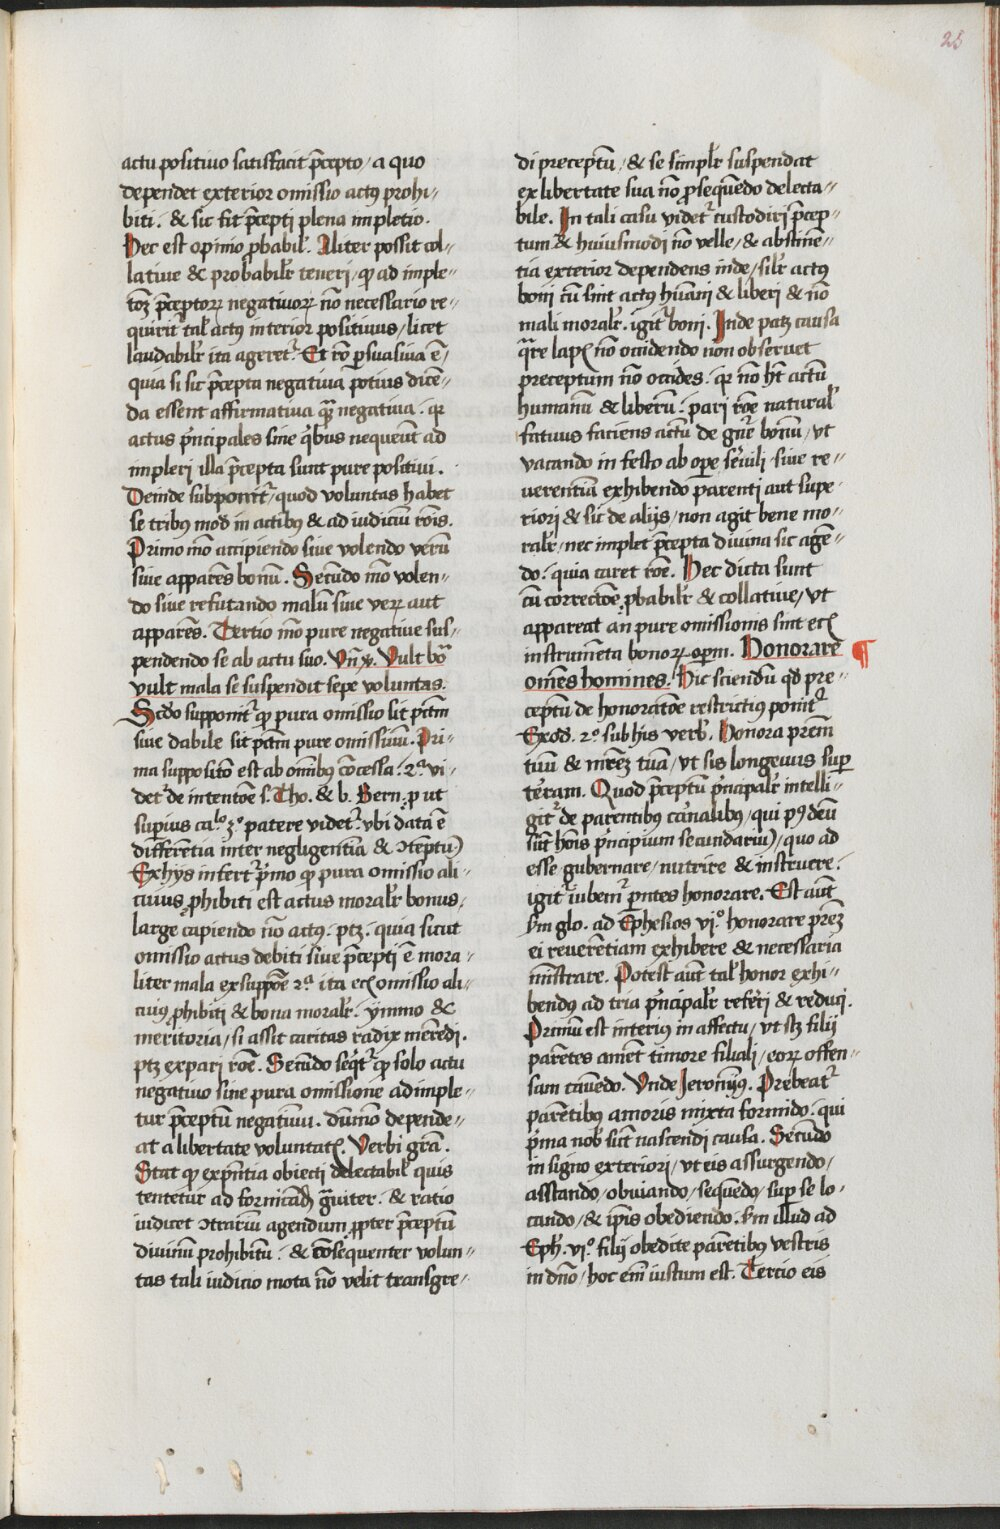 25
actu positiuo satisfacit p̄cepto / a quo
dependet exterior omissio actꝰ prohi-
biti . & sic fit p̄cepti plena impletio .
Hec est opinio ꝓbabil̕ . Aliter possit col-
latiue & probabilr̕ teneri / ꝙ ad imple-
tōꝫ p̄ceptoꝝ negatiuoꝝ nō necessario re-
quirit̕ tal̕ actꝰ interior positiuus / licet
laudabilr̕ ita ageret̕ . Et rō ꝑsuasiua ē /
quia si sic p̄cepta negatiua potius dicē-
da essent affirmatiua qͣꝫ negatiua . qr
actus pͥncipales sine qͥbus nequeūt ad
impleri illa p̄cepta sunt pure positiui .
Deinde subponit̕ / quod voluntas habet
se tribꝰ mod̕ in actibꝰ & ad iudiciū rōis .
Primo mō accipiendo siue volendo verū
siue apparēs bonū . Secūdo mō volen-
do siue refutando malū siue veꝝ aut
apparēs . Tertio mō pure negatiue sus-
pendendo se ab actu suo . Vn̄ ꝟ . Vult bōa
vult mala se suspendit sepe voluntas .
Scd̄o supponit̕ ꝙ pura omissio sit pctm̄
siue dabile sit pctm̄ pure omissiuū . Pri-
ma suppositō est ab omībus cōcessa . 2ᵃ vi-
det̕ de intentōe s . Tho . & b . Bern . ꝓut
suꝑius ca.ˡᵒ 3.ᵒ patere videt̕ . vbi data ē
differētia inter negligentiā & ꝯteptū)
Ex hys infert̕ pͥmo ꝙ pura omissio ali-
cuius ꝓhibiti est actus moralr̕ bonus ,
large capiendo nō actꝰ . ptꝫ . quia sicut
omissio actus debiti siue p̄cepti ē mora-
liter mala ex suppōe 2ᵃ ita ecī omissio ali-
cuiꝰ ꝓhibiti & bona moralr̕ . ymmo &
meritoria / si assit caritas radix merēdi .
ptꝫ ex pari rōe . Secūdo seqͥt̕ ꝙ solo actu
negatiuo siue pura omissione adimple-
tur p̄ceptū negatiuū . dūmō depende-
at a libertate voluntatꝭ . Verbi gr̄a .
Stat ꝙ ex pn̄tia obiecti delectabil̕ quis
tentetur ad fornicād̕ gͣuiter . & ratio
iudicet ꝯtrariū agendum ꝓpter p̄ceptū
diuinū prohibitū . & cōsequenter volun-
tas tali iudicio mota nō velit transgre-
di preceptū / & se simplr̕ suspendat
ex libertate sua nō ꝓsequēdo delecta-
bile . In tali casu videt̕ custodiri p̄cep-
tum & huiusmodi nō velle / & abstinē-
tia exterior dependens inde / silr̕ actꝰ
boni cū sint actꝰ hūani & liberi & nō
mali moralr̕ . igit̕ boni . Inde patꝫ causa
qͣre lapꝭ nō occidendo non obseruet
preceptum nō occides . qr nō hꝫt actū
humanū & liberū . pari rōe natural̕
fatuus faciens actū de gn̄e bonū / vt
vacando in festo ab oꝑe ẜuili siue re-
uerentiā exhibendo parenti aut supe-
riori & sic de alijs / non agit bene mo-
ralr̕ / nec implet p̄cepta diuina sic agē-
do . quia caret rōe . Hec dicta sunt
cū correctōe ꝓbabilr̕ & collatiue / vt
appareat an pure omissionis sint ecī
instrumēta bonoꝝ oꝑm . Honorare ¶
omēs homines . Hic sciendū qd̄ pre-
ceptū de honoratōe restrictius ponit̕
Exod̕ . 2ᵒ sub his verb̕ . Honora prēm
tuū & mrēꝫ tuā / vt sis longeuus suꝑ
tērram . Quod p̄ceptū pͥncipalr̕ intelli-
git̕ de parentibꝰ carnalibꝰ / qui pꝰ deū
sūt hōis pͥncipium secundariū) / quo ad
esse gubernare / nutrire & instruere .
igit̕ iubem̕ pn̄tes honorare . Est aūt
ẜm glo . ad Ephesios vi.ᵒ honorare prēꝫ
ei reuerētiam exhibere & necessaria
mīstrare . Potest aūt tal̕ honor exhi-
bendꝰ ad tria pͥncipalr̕ referri & reduci .
Primū est interius in affectu / vt scꝫ filii
parētes amēt timore filiali / eoꝝ offen-
sam cauēdo . Vnde Jeronimꝰ . Prebeat̕
parētibꝰ amoris mixta formido . qui
pͥma nob̕ sūt nascendi causa . Secūdo
in signo exteriori / vt eis assurgendo /
asstando / obuiando / sequēdo / suꝑ se lo-
cando / & ip̄is obediendo . ẜm illud ad
Eph̕ . vi.ᵒ filij obedite parētibꝰ vestris
in dn̄o / hoc em̄ iustum est . Tercio eis